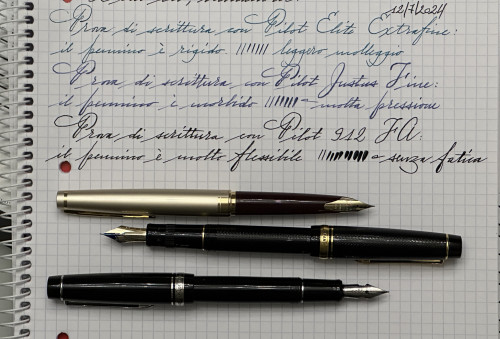 12/7/2024
Prova di scrittura con Pilot Elite Extrafine:
il pennino è rigido leggero molleggio
Prova di scrittura con Pilot Justus Fine:
il pennino è morbido = molta pressione
Prova di scrittura con Pilot 912 FA:
il pennino è molto flessibile = senza fatica